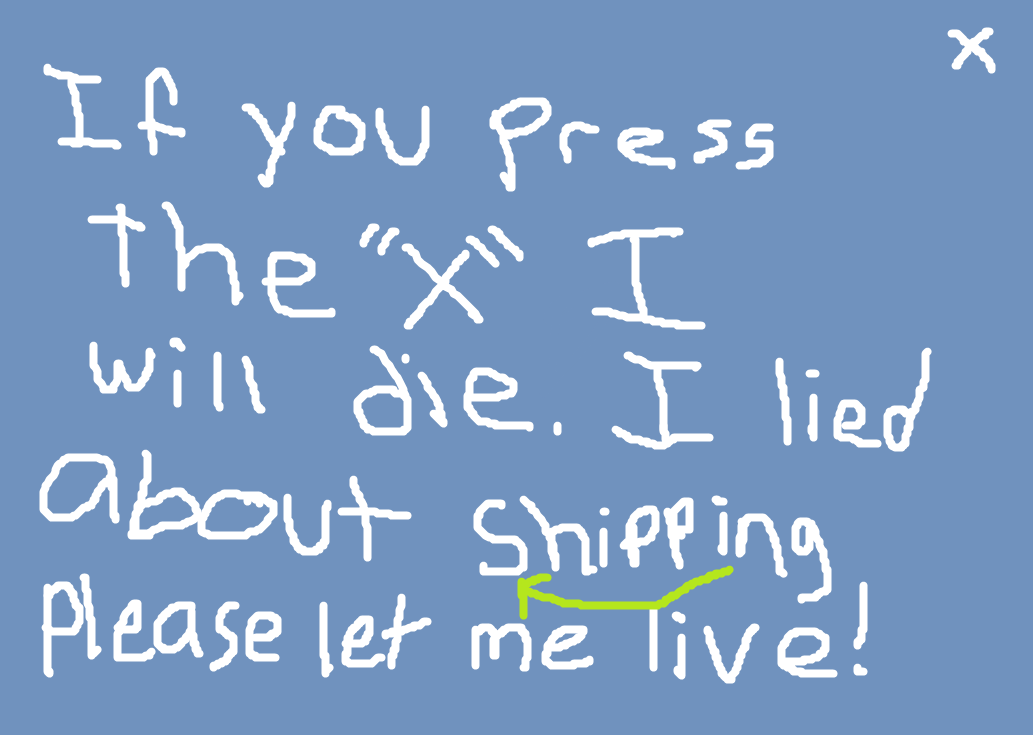 X
If you press
the "X" I
will die. I lied
about shipping
please let me live!